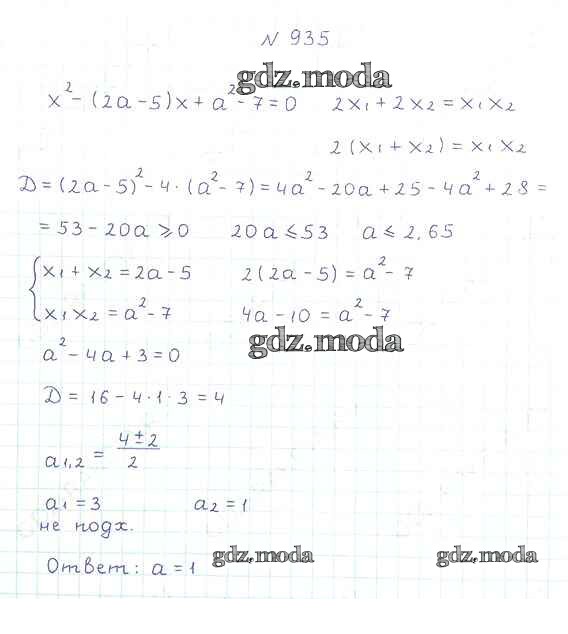 N 935
gdz.moda
x² - (2a-5)x + a² - 7 = 0    2x₁ + 2x₂ = x₁x₂
2(x₁ + x₂) = x₁x₂
D = (2a-5)² - 4·(a² - 7) = 4a² - 20a + 25 - 4a² + 28 =
= 53 - 20a ⩾ 0    20a ⩽ 53    a ⩽ 2,65
x₁ + x₂ = 2a - 5    2(2a - 5) = a² - 7
x₁x₂ = a² - 7    4a - 10 = a² - 7
gdz.moda
a² - 4a + 3 = 0
D = 16 - 4·1·3 = 4
a₁,₂ = (4 ± 2)/2
a₁ = 3    a₂ = 1
не подх.
Ответ: a = 1
gdz.moda    gdz.moda